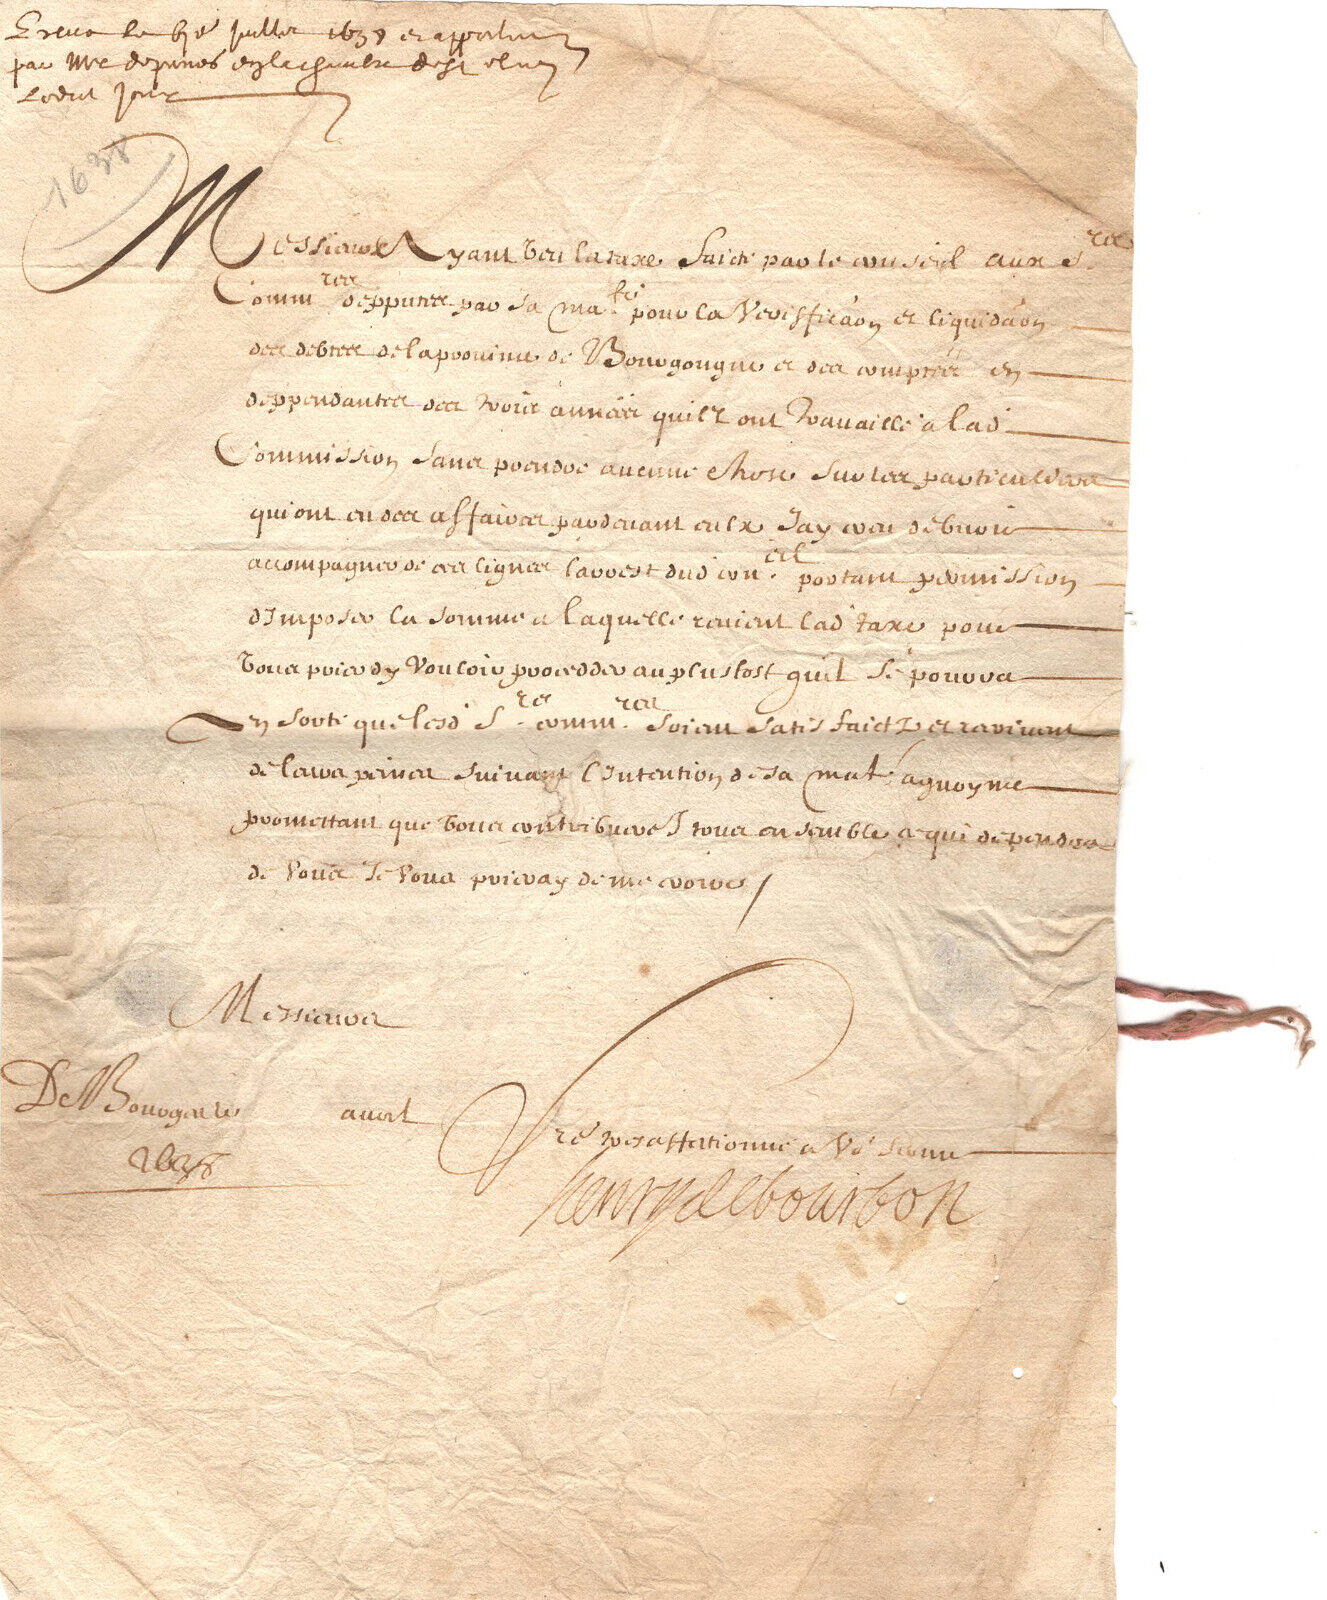 Receue le 6e Juillet 1638 et apportee
par Mr
Ledict Jour
1638
Messieurs Ayant veu la taxe faicte par le conseil aux Srs
Commres depputez par sa maté pour la veriffićaon et liquidaon
des debtes de la province de Bourgongne et des comptes en
deppendantes des trois années quilz ont travaillé a lad
Commission sans prendre aucune chose sur les particuliers
qui ont eu des affaires pardevant eulx Jay creu debvoir
accompagner de ces lignes larrest dud conel portant permission
dimposer la somme a laquelle revient lad taxe pour
vous prier dy vouloir proceder au plustost quil se pourra
En sorte que lesd Srs commres soient satisfaictz et
de leurs peines suivant lintention de sa maté a quoy me
promettant que vous contribuerez tous ensemble ce qui dependra
de vous Je vous prieray de me croire /
Messieurs
De Bourges le avril
1638
Vre tres affectionné a vous servir
henry de bourbon